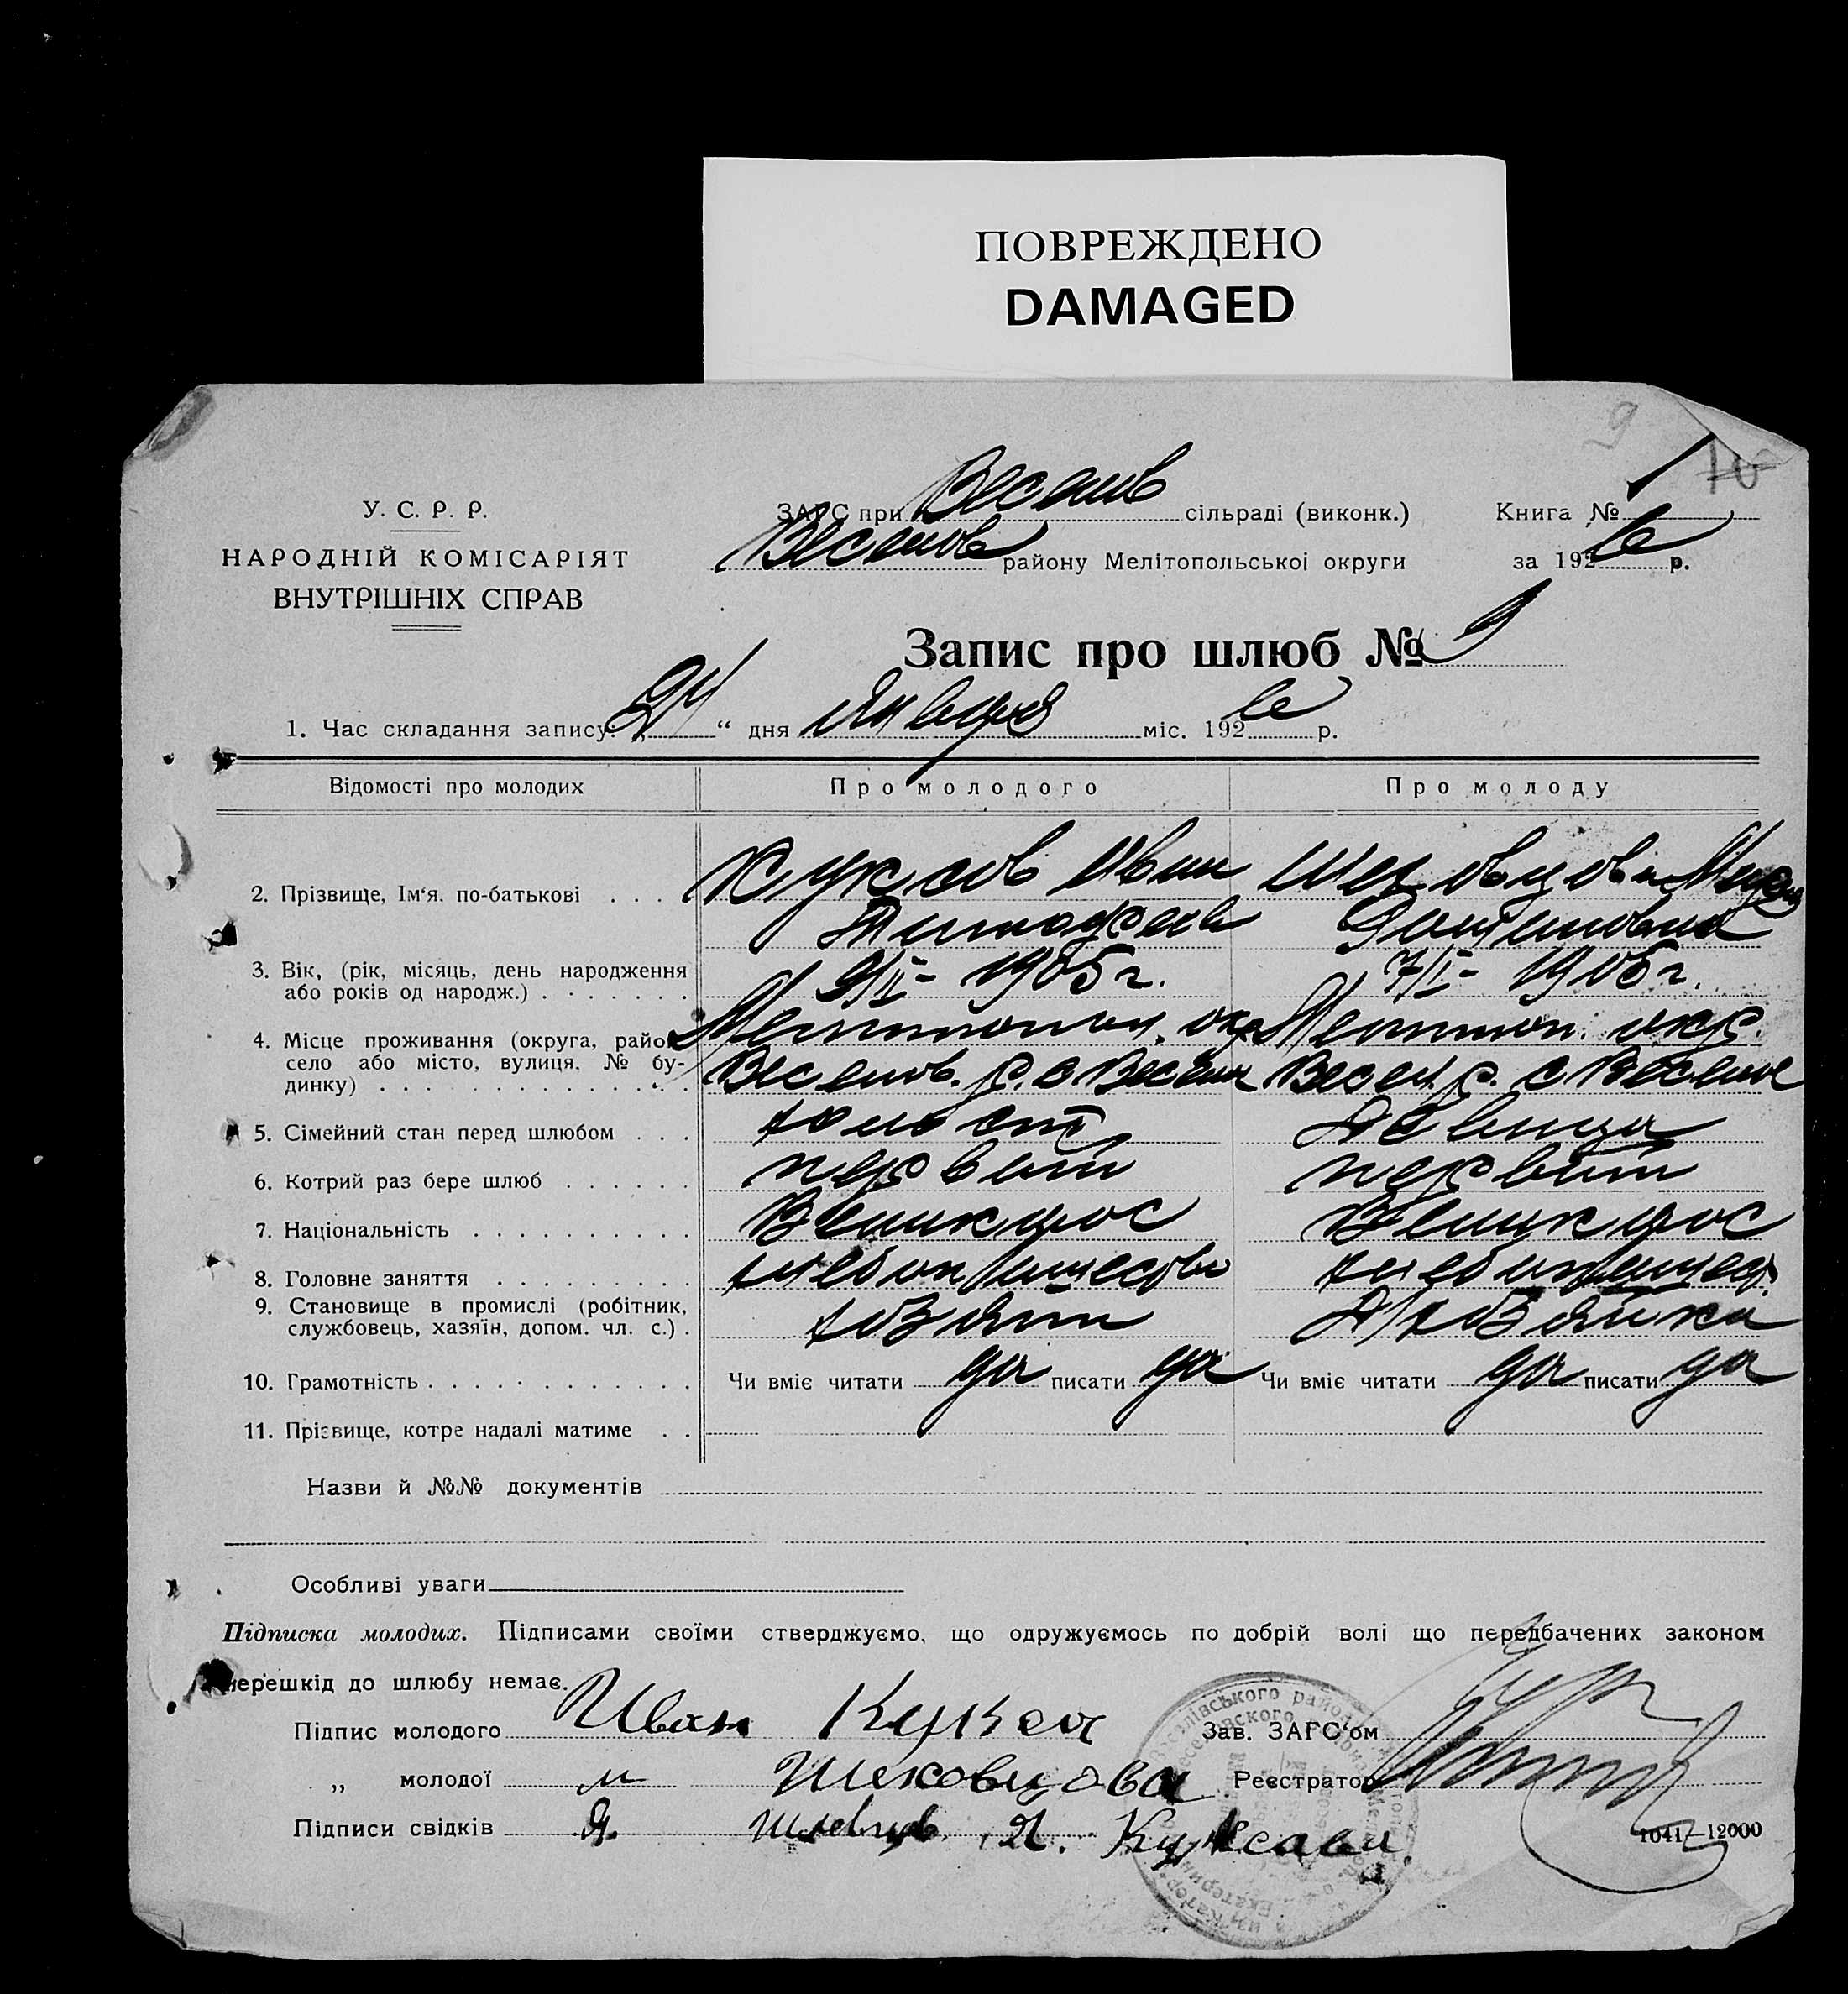 ПОВРЕЖДЕНО
DAMAGED
9
10
У. С. Р. Р.
НАРОДНІЙ КОМІСАРІЯТ
ВНУТРІШНІХ СПРАВ
ЗАГС при Веселів сільраді (виконк.)
Веселов району Мелітопольської округи
Книга № 1
за 1926 р.
Запис про шлюб № 9
1. Час складання запису: „24“ дня Января міс. 1926 р.
Відомості про молодих Про молодого Про молоду
2. Прізвище, Ім‘я. по-батькові . . . . Куксов Иван Шеховцова
Тимофеев
3. Вік, (рік, місяць, день народження
або років од народж.) . . . . . . . 9/II - 1905 г. 7/I - 1905 г.
4. Місце проживання (округа, район, Мелитопол. окр. Мелитоп. окр.
село або місто, вулиця, № бу- Веселов. р. с Веселое Весел. р. с Веселое
динку) . . . . . . . . . . . . . .
5. Сімейний стан перед шлюбом . . . холост Девица
6. Котрий раз бере шлюб . . . . . . первый первый
7. Національність . . . . . . . . . . Великорос Великорос
8. Головне заняття . . . . . . . . . хлебопашество хлебопашест.
9. Становище в промислі (робітник,
службовець, хазяїн, допом. чл. с.) . хозяин Д/хозяйка
10. Грамотність . . . . . . . . . . . . Чи вміє читати да писати да Чи вміє читати да писати да
11. Прізвище, котре надалі матиме . .
Назви й №№ документів
Особливі уваги
Підписка молодих. Підписами своїми стверджуємо, що одружуємось по добрій волі що передбачених законом
перешкід до шлюбу немає.
Підпис молодого Иван Куксов Зав. ЗАГС‘ом
„ молодої м Шеховцова Реєстратор
Підписи свідків Я. Я. Куксава.
1041—12000